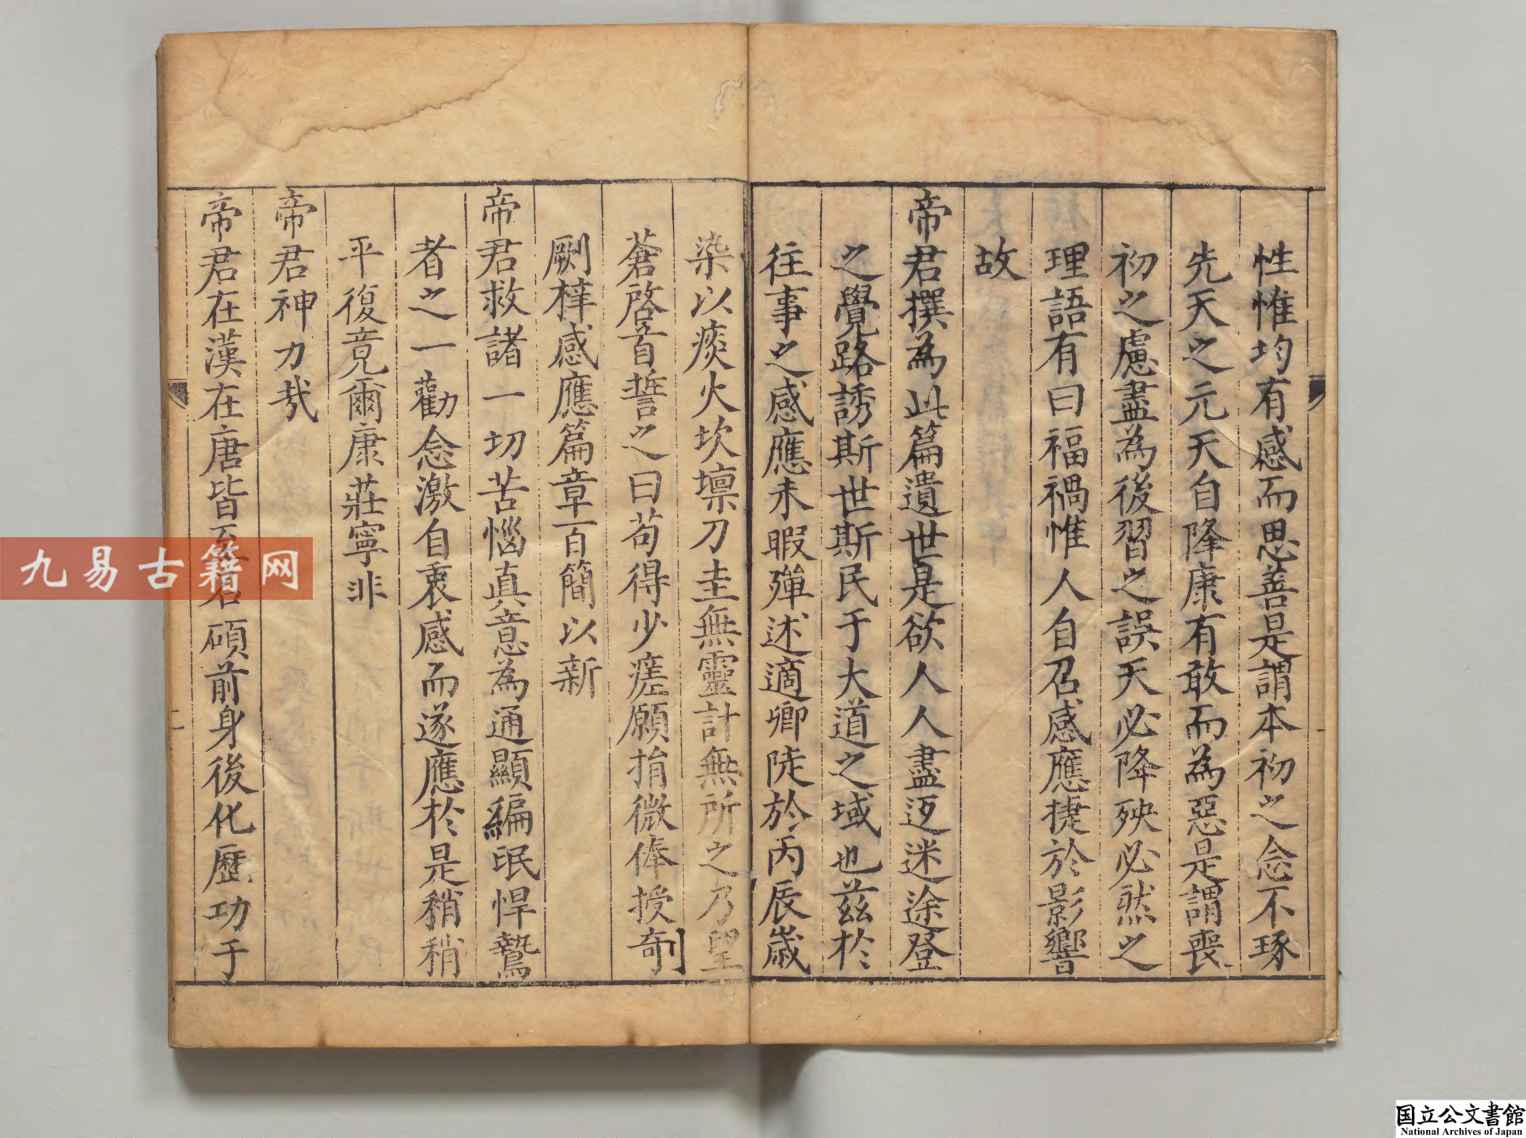 性惟均有感而思善是謂本初之念不琢
先天之元天自降康有敢而為惡是謂喪
初之慮盡為後習之誤天必降殃必然之
理語有曰福禍惟人自召感應捷於影響
故
帝君撰為此篇遺世是欲人人盡返迷途登
之覺路誘斯世斯民于大道之域也茲於
往事之感應未暇殫述適卿陡於丙辰歲
染以痰火坎壈刀圭無靈計無所之乃望
蒼啓首誓之曰苟得少瘥願捐微俸授剞
劂梓感應篇章百簡以新
帝君救諸一切苦惱真意為通顯編氓悍鷙
者之一勸念激自衷感而遂應於是稍稍
平復竟爾康莊寧非
帝君神力哉
帝君在漢在唐皆至 碩前身後化歷功于
九易古籍网
国立公文書館
National Archives of Japan